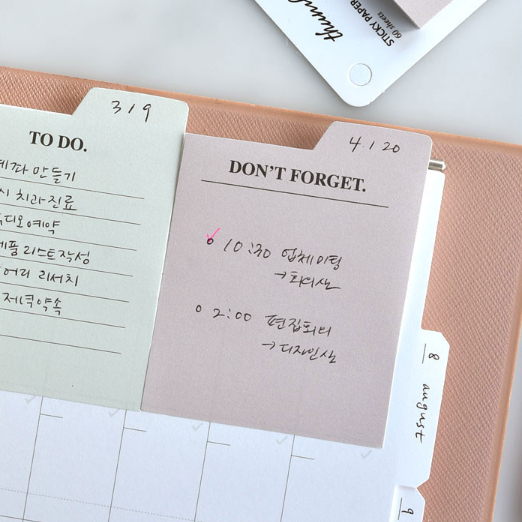 thumb
STICKY PAPER
60 sheets
3 / 9
TO DO.
만들기
치과진료
예약
리스트 작성
리서치
저녁약속
4 / 20
DON'T FORGET.
10:30 업체미팅
→
2:00 편집회의
→ 디자인실
8
august
9